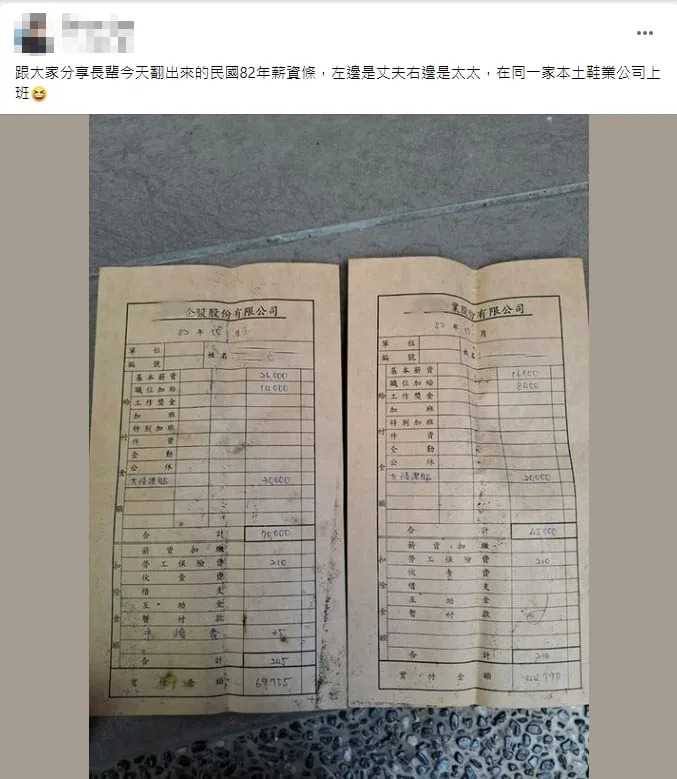 跟大家分享長輩今天翻出來的民國82年薪資條，左邊是丈夫右邊是太太，在同一家本土鞋業公司上
班😆
股份有限公司
82 年 月
單位
姓名
編號
給付金額
基本薪資 26,000
職位加給 14,000
工作獎金
加班
特別加班
件資
全勤
公休
大陸津貼 30000
合計 70,000
扣除金額
薪資扣繳
勞工保險費 210
伙食費
借支
互助金
暫付款
費 35
合計 245
實付金額 69755
業股份有限公司
82 年 月
單位
姓名
編號
給付金額
基本薪資 16600
職位加給 8400
工作獎金
加班
特別加班
件資
全勤
公休
大陸津貼 20000
合計 45,000
扣除金額
薪資扣繳
勞工保險費 210
伙食費
借支
互助金
暫付款
合計 210
實付金額 44,790